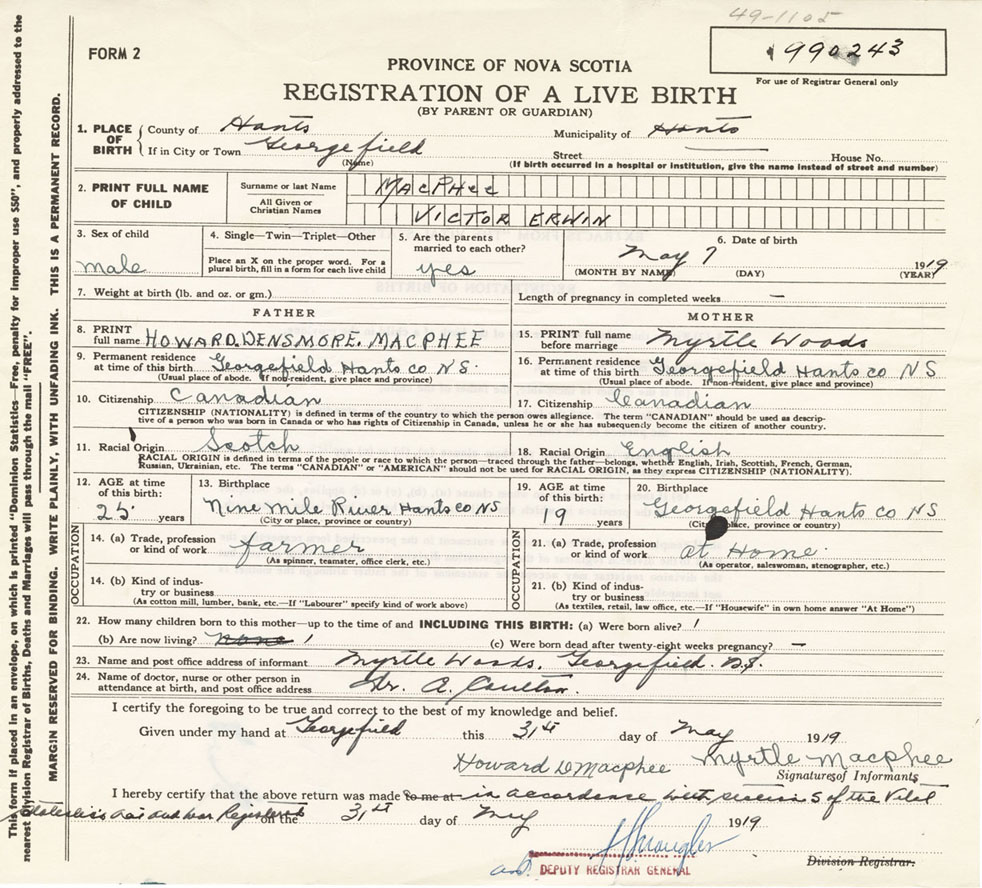 49-1105
FORM 2
990243
For use of Registrar General only
PROVINCE OF NOVA SCOTIA
REGISTRATION OF A LIVE BIRTH
(BY PARENT OR GUARDIAN)
1. PLACE OF BIRTH { County of Hants Municipality of Hants
If in City or Town Georgefield Street House No.
(Name) (If birth occurred in a hospital or institution, give the name instead of street and number)
2. PRINT FULL NAME OF CHILD Surname or last Name MACPHEE
All Given or Christian Names VICTOR ERWIN
3. Sex of child male
4. Single—Twin—Triplet—Other
Place an X on the proper word. For a plural birth, fill in a form for each live child
5. Are the parents married to each other? yes
6. Date of birth
May 7 1919
(MONTH BY NAME) (DAY) (YEAR)
7. Weight at birth (lb. and oz. or gm.) Length of pregnancy in completed weeks —
FATHER
8. PRINT full name HOWARD. DENSMORE. MACPHEE
9. Permanent residence at time of birth Georgefield Hants co N.S.
(Usual place of abode. If non-resident, give place and province)
10. Citizenship Canadian
MOTHER
15. PRINT full name before marriage Myrtle Woods
16. Permanent residence at time of birth Georgefield Hants co NS
(Usual place of abode. If non-resident, give place and province)
17. Citizenship Canadian
CITIZENSHIP (NATIONALITY) is defined in terms of the country to which the person owes allegiance. The term "CANADIAN" should be used as descrip-
tive of a person who was born in Canada or who has rights of Citizenship in Canada, unless he or she has subsequently become the citizen of another country.
11. Racial Origin Scotch 18. Racial Origin English
RACIAL ORIGIN is defined in terms of the people or race to which the person—traced through the father—belongs, whether English, Irish, Scottish, French, German,
Russian, Ukrainian, etc. The terms "CANADIAN" or "AMERICAN" should not be used for RACIAL ORIGIN, as they express CITIZENSHIP (NATIONALITY).
12. AGE at time of this birth: 25 years
13. Birthplace
Nine Mile River Hants co NS
(City or place, province or country)
19. AGE at time of this birth: 19 years
20. Birthplace
Georgefield Hants co NS
(City or place, province or country)
OCCUPATION
14. (a) Trade, profession or kind of work farmer
(As spinner, teamster, office clerk, etc.)
14. (b) Kind of indus-
try or business
(As cotton mill, lumber, bank, etc.—If "Labourer" specify kind of work above)
OCCUPATION
21. (a) Trade, profession or kind of work at Home.
(As operator, saleswoman, stenographer, etc.)
21. (b) Kind of indus-
try or business
(As textiles, retail, law office, etc.—If "Housewife" in own home answer "At Home")
22. How many children born to this mother—up to the time of and INCLUDING THIS BIRTH: (a) Were born alive? 1
(b) Are now living? none 1 (c) Were born dead after twenty-eight weeks pregnancy? —
23. Name and post office address of informant Myrtle Woods, Georgefield. N.S.
24. Name of doctor, nurse or other person in attendance at birth, and post office address Dr. A.
I certify the foregoing to be true and correct to the best of my knowledge and belief.
Given under my hand at Georgefield this 31st day of May 1919
Howard D Macphee Myrtle Macphee
Signatures of Informants
I hereby certify that the above return was made to me at in accordance with section 5 of the Vital
Statistics Act and was Registered on the 31st day of May 1919
DEPUTY REGISTRAR GENERAL
Division Registrar.
This form if placed in an envelope, on which is printed "Dominion Statistics—Free, penalty for improper use $50", and properly addressed to the
nearest Division Registrar of Births, Deaths and Marriages will pass through the mail "FREE".
MARGIN RESERVED FOR BINDING. WRITE PLAINLY, WITH UNFADING INK. THIS IS A PERMANENT RECORD.